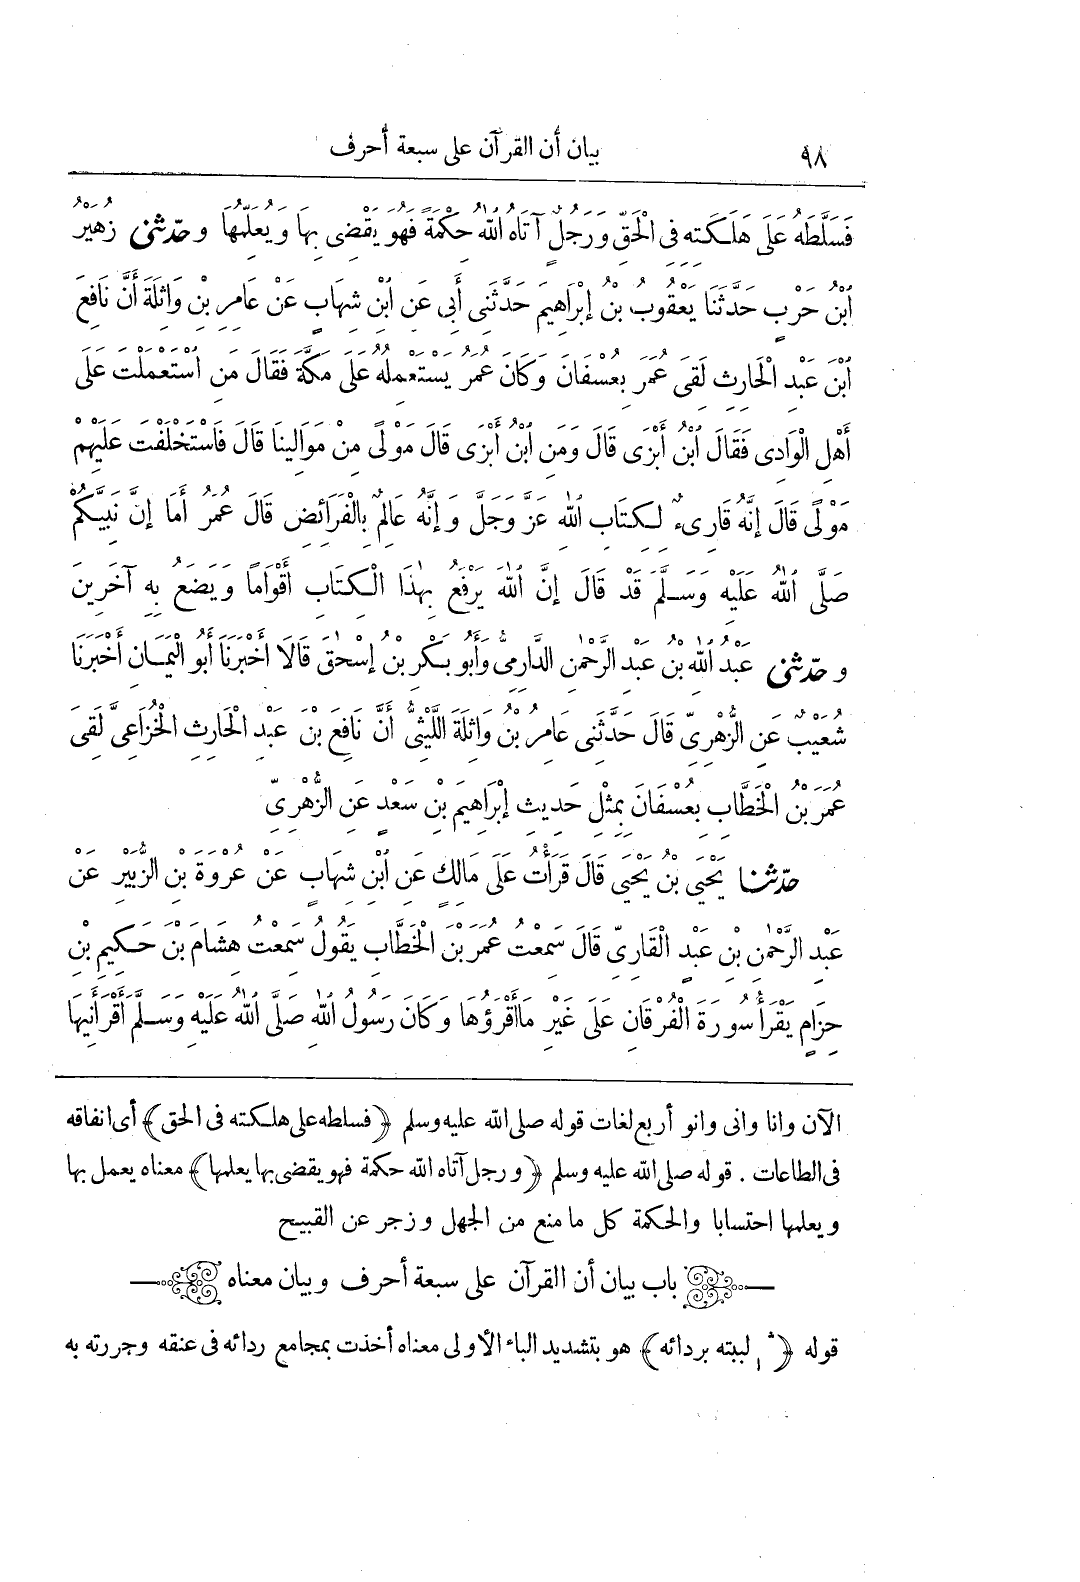 ٩٨
بيان أن القرآن على سبعة أحرف
فَسَلَّطَهُ عَلَى هَلَكَتِهِ فِى الْحَقِّ وَرَجُلٌ آتَاهُ اللهُ حِكْمَةً فَهُوَ يَقْضِى بِهَا وَيُعَلِّمُهَا وحدّثنى زُهَيْرُ
ابْنُ حَرْبٍ حَدَّثَنَا يَعْقُوبُ بْنُ إِبْرَاهِيمَ حَدَّثَنِى أَبِى عَنِ ابْنِ شِهَابٍ عَنْ عَامِرِ بْنِ وَاثِلَةَ أَنَّ نَافِعَ
ابْنَ عَبْدِ الْحَارِثِ لَقِىَ عُمَرَ بِعُسْفَانَ وَكَانَ عُمَرُ يَسْتَعْمِلُهُ عَلَى مَكَّةَ فَقَالَ مَنِ اسْتَعْمَلْتَ عَلَى
أَهْلِ الْوَادِى فَقَالَ ابْنَ أَبْزَى قَالَ وَمَنِ ابْنُ أَبْزَى قَالَ مَوْلًى مِنْ مَوَالِينَا قَالَ فَاسْتَخْلَفْتَ عَلَيْهِمْ
مَوْلًى قَالَ إِنَّهُ قَارِىءٌ لِكِتَابِ اللهِ عَزَّ وَجَلَّ وَإِنَّهُ عَالِمٌ بِالْفَرَائِضِ قَالَ عُمَرُ أَمَا إِنَّ نَبِيَّكُمْ
صَلَّى اللهُ عَلَيْهِ وَسَلَّمَ قَدْ قَالَ إِنَّ اللهَ يَرْفَعُ بِهٰذَا الْكِتَابِ أَقْوَامًا وَيَضَعُ بِهِ آخَرِينَ
وحدّثنى عَبْدُ اللهِ بْنُ عَبْدِ الرَّحْمٰنِ الدَّارِمِىُّ وَأَبُو بَكْرِ بْنُ إِسْحٰقَ قَالَا أَخْبَرَنَا أَبُو الْيَمَانِ أَخْبَرَنَا
شُعَيْبٌ عَنِ الزُّهْرِىِّ قَالَ حَدَّثَنِى عَامِرُ بْنُ وَاثِلَةَ اللَّيْثِىُّ أَنَّ نَافِعَ بْنَ عَبْدِ الْحَارِثِ الْخُزَاعِىَّ لَقِىَ
عُمَرَ بْنَ الْخَطَّابِ بِعُسْفَانَ بِمِثْلِ حَدِيثِ إِبْرَاهِيمَ بْنِ سَعْدٍ عَنِ الزُّهْرِىِّ
حدّثنا يَحْيَى بْنُ يَحْيَى قَالَ قَرَأْتُ عَلَى مَالِكٍ عَنِ ابْنِ شِهَابٍ عَنْ عُرْوَةَ بْنِ الزُّبَيْرِ عَنْ
عَبْدِ الرَّحْمٰنِ بْنِ عَبْدٍ الْقَارِىِّ قَالَ سَمِعْتُ عُمَرَ بْنَ الْخَطَّابِ يَقُولُ سَمِعْتُ هِشَامَ بْنَ حَكِيمِ بْنِ
حِزَامٍ يَقْرَأُ سُورَةَ الْفُرْقَانِ عَلَى غَيْرِ مَا أَقْرَؤُهَا وَكَانَ رَسُولُ اللهِ صَلَّى اللهُ عَلَيْهِ وَسَلَّمَ أَقْرَأَنِيهَا
الآن وانا وانى وانو أربع لغات قوله صلى الله عليه وسلم ﴿فسلطه على هلكته فى الحق﴾ أى انفاقه
فى الطاعات . قوله صلى الله عليه وسلم ﴿ورجل آتاه الله حكمة فهو يقضى بها يعلمها﴾ معناه يعمل بها
ويعلمها احتسابا والحكمة كل ما منع من الجهل وزجر عن القبيح
باب بيان أن القرآن على سبعة أحرف وبيان معناه
قوله ﴿لببته بردائه﴾ هو بتشديد الباء الأولى معناه أخذت بمجامع ردائه فى عنقه وجررته به